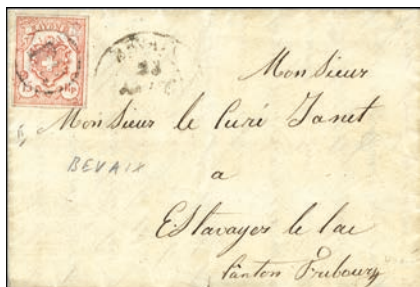 RAYON
15 Rp
23
Monsieur
Monsieur le Curé Janet
BEVAIX
a
Estavayer le lac
Canton Fribourg